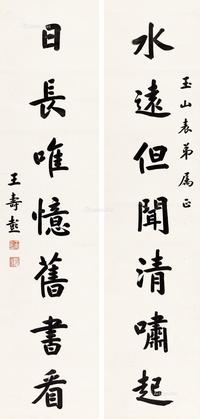 水遠但聞清嘯起
玉山表弟屬正
日長唯憶舊書看
王壽彭